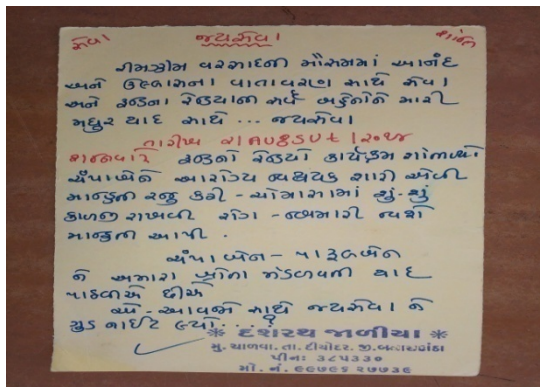 સેવા જયસેવા શાંતિ
રીમઝીમ વરસાદની મૌસમમાં આનંદ
અને ઉલ્લાસના વાતાવરણ સાથે સેવા
અને રૂડીના રેડિયાના સર્વે બહેનોને મારી
મધુર યાદ સાથે ... જયસેવા
તારીખ ૨/AUGSUt/૨૦૧૪
શનિવારે રૂડીનો રેડિયો કાર્યક્રમ સાંભળ્યો
ચંપાબેને આરોગ્ય સારી એવી
માહિતી રજુ કરી - ચોમાસામાં શું-શું
કાળજી રાખવી રોગ - બિમારી વિશે
માહિતી આપી .
ચંપાબેન - પારૂલબેન
ને અમારા શ્રોતા મંડળવતી યાદ
પાઠવીએ છીએ
એ - આવજો સાથે જયસેવા ને
ગુડ નાઈટ
* દશરથ જાળીયા *
મુ. ચાળવા. તા. દીયોદર. જી. બનાસકાંઠા
પીન: ૩૮૫૩૩૦
મો. નં. ૯૯૭૯૬ ૨૭૭૩૬